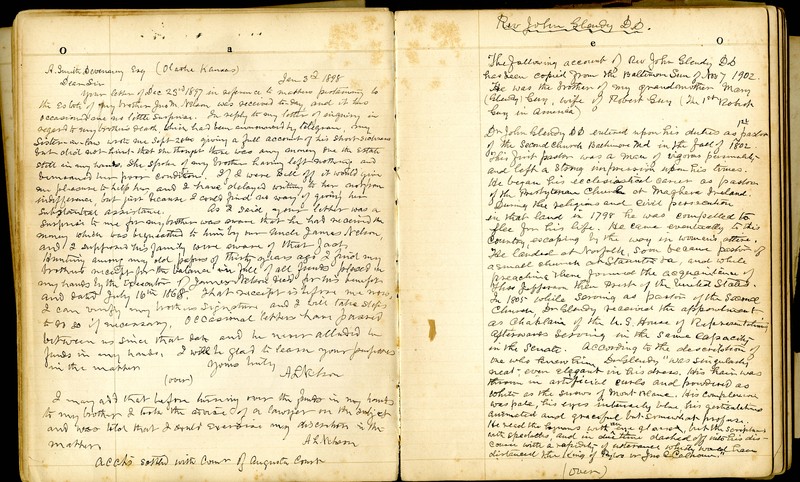 O a
A. Smith Devenney Esq (Olathe Kansas)
Jan 3rd 1898
Dear Sir
Your letter of Dec 23rd 1897 in reference to matters pertaining to
the Estate of my brother Jas M. Nelson was received to day and it has
occasioned me no little surprise. In reply to my letter of inquiry in
regard to my brother's death which had been announced by telegram, my
Sister-in-law wrote me Sept 20th giving a full account of his short sickness
but did not hint that she thought there was any money due the estate
still in my hands. She spoke of my brother having left nothing and
bemoaned her poor condition. If I were well off it would give
me pleasure to help her, and I have delayed writing to her not from
indifference but just because I could find no way of giving her
substantial assistance. As I said your letter was a
surprise to me for my brother was aware that he had received the
money which was bequeathed to him by our Uncle James Nelson,
and I supposed his family were aware of that fact.
Hunting among my old papers of thirty years ago I find my
brother's receipt for the balance in full of all funds placed in
my hands by the Executor of James Nelson dec'd for his benefit
and dated July 16th 1868. That receipt is before me now,
I can verify my brother's signature and I will take steps
to do so if necessary. Occasional letters have passed
between us since that date and he never alluded to
funds in my hands. I will be glad to learn your purposes
in the matter
Yours truly
A L Nelson
(over)
I may add that before turning over the funds in my hands
to my brother I took the advice of a lawyer on the subject
and was told that I could exercise my discretion in the
matter.
A L Nelson
Acct's settled with Court of Augusta County
e O
Rev John Glendy DD.
The following account of Rev John Glendy DD
has been copied from the Baltimore Sun of Nov 7 1902.
He was the brother of my grandmother Mary
(Glendy) Guy, wife of Robert Guy (The 1st Robert
Guy in America)
Dr John Glendy DD entered upon his duties as 1st pastor
of the Second Church Baltimore Md in the fall of 1802
This first pastor was a man of vigorous personality
and left a strong impression upon his times.
He began his ecclesiastical career as pastor
of the Presbyterian Church at Maghera Ireland.
During the religious and civil persecution
in that land in 1798 he was compelled to
flee for his life. He came eventually to this
Country, escaping by the way in women's attire.
He landed at Norfolk, soon became pastor of
a small church at Staunton Va, and while
preaching there formed the acquaintance of
Thos Jefferson then Prest of the United States.
In 1805 while serving as pastor of the Second
Church Dr Glendy received the appointment
as Chaplain of the U.S. House of Representatives
afterwards serving in the same capacity
in the Senate. According to the description of
one who knew him Dr Glendy "was singularly
neat, even elegant in his dress. His hair was
thrown in artificial curls and powdered as
white as the snows of Mont Blanc. His complexion
was pale, his eyes intensely blue, his gesticulations
animated and graceful but somewhat profuse.
He read the hymns with an eye glass, but the scriptures
with spectacles, and in due time dashed off into his dis-
course with a rapidity of utterance which would have
distanced the King of or Jno C Calhoun."
(over)